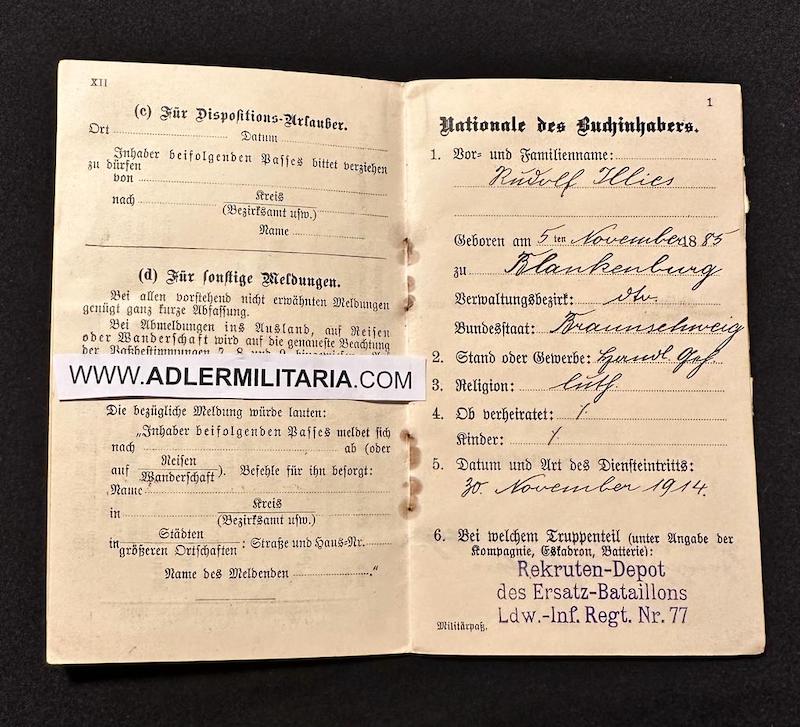 XII
(c) Für Dispositions-Urlauber.
Ort
Datum
Inhaber beifolgenden Passes bittet verziehen
zu dürfen
von
nach
Kreis
(Bezirksamt usw.)
Name
(d) Für sonstige Meldungen.
Bei allen vorstehend nicht erwähnten Meldungen
genügt ganz kurze Abfassung.
Bei Abmeldungen ins Ausland, auf Reisen
oder Wanderschaft wird auf die genaueste Beachtung
der Paßbestimmungen 7, 8 und 9 hingewiesen.
WWW.ADLERMILITARIA.COM
Die bezügliche Meldung würde lauten:
„Inhaber beifolgenden Passes meldet sich
nach ab (oder
auf Reisen
Wanderschaft). Befehle für ihn besorgt:
Name
in Kreis
(Bezirksamt usw.)
in Städten
größeren Ortschaften : Straße und Haus-Nr.
Name des Meldenden ."
1
Nationale des Buchinhabers.
1. Vor- und Familienname:
Rudolf Illies
Geboren am 5 ten November 1885
zu Blankenburg
Verwaltungsbezirk: dto.
Bundesstaat: Braunschweig
2. Stand oder Gewerbe: Handl. Geh.
3. Religion: luth.
4. Ob verheiratet: /
Kinder: /
5. Datum und Art des Diensteintritts:
30. November 1914.
6. Bei welchem Truppenteil (unter Angabe der
Kompagnie, Eskadron, Batterie):
Rekruten-Depot
des Ersatz-Bataillons
Ldw.-Inf. Regt. Nr. 77
Militärpaß.